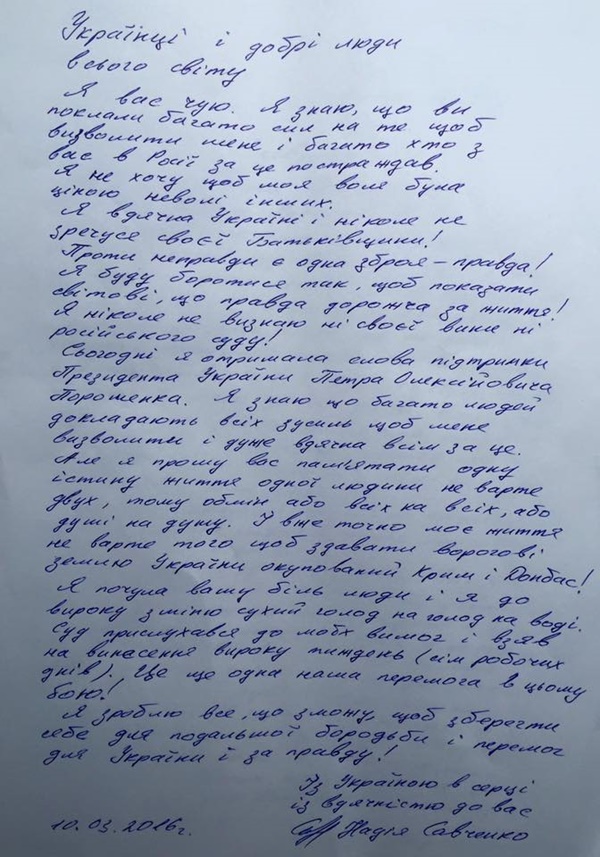 Українці і добрі люди
всього світу
Я вас чую. Я знаю, що ви
поклали багато сил на те щоб
визволити мене і багато хто з
вас в Росії за це постраждав.
Я не хочу щоб моя воля була
ціною неволі інших.
Я вдячна Україні і ніколе не
зречусе своєї Батьківщини!
Проти неправди є одна зброя – правда!
Я буду боротисе так, щоб показати
світові, що правда дорожча за життя!
Я ніколе не визнаю ні своєї вини ні
російського суду!
Сьогодні я отримала слова підтримки
Президента України Петра Олексійовича
Порошенка. Я знаю що багато людей
докладають всіх зусиль щоб мене
визволити і дуже вдячна всім за це.
Але я прошу вас пам'ятати одну
істину життя одної людини не варте
двух, тому обмін або всіх на всіх, або
душі на душу. І вже точно моє життя
не варте того щоб здавати ворогові
землю України окупований Крим і Донбас!
Я почула вашу біль люди і я до
вироку зміню сухий голод на голод на воді.
Суд прислухався до моїх вимог і взяв
на винасення вироку тиждень (сім робочих
днів). Це ще одна наша перемога в цьому
бою!
Я зроблю все, що зможу, щоб зберегти
себе для подальшої бородьби і перемог
для України і за правду!
Із Україною в серці
із вдячністю до вас
Надія Савченко
10.03.2016г.